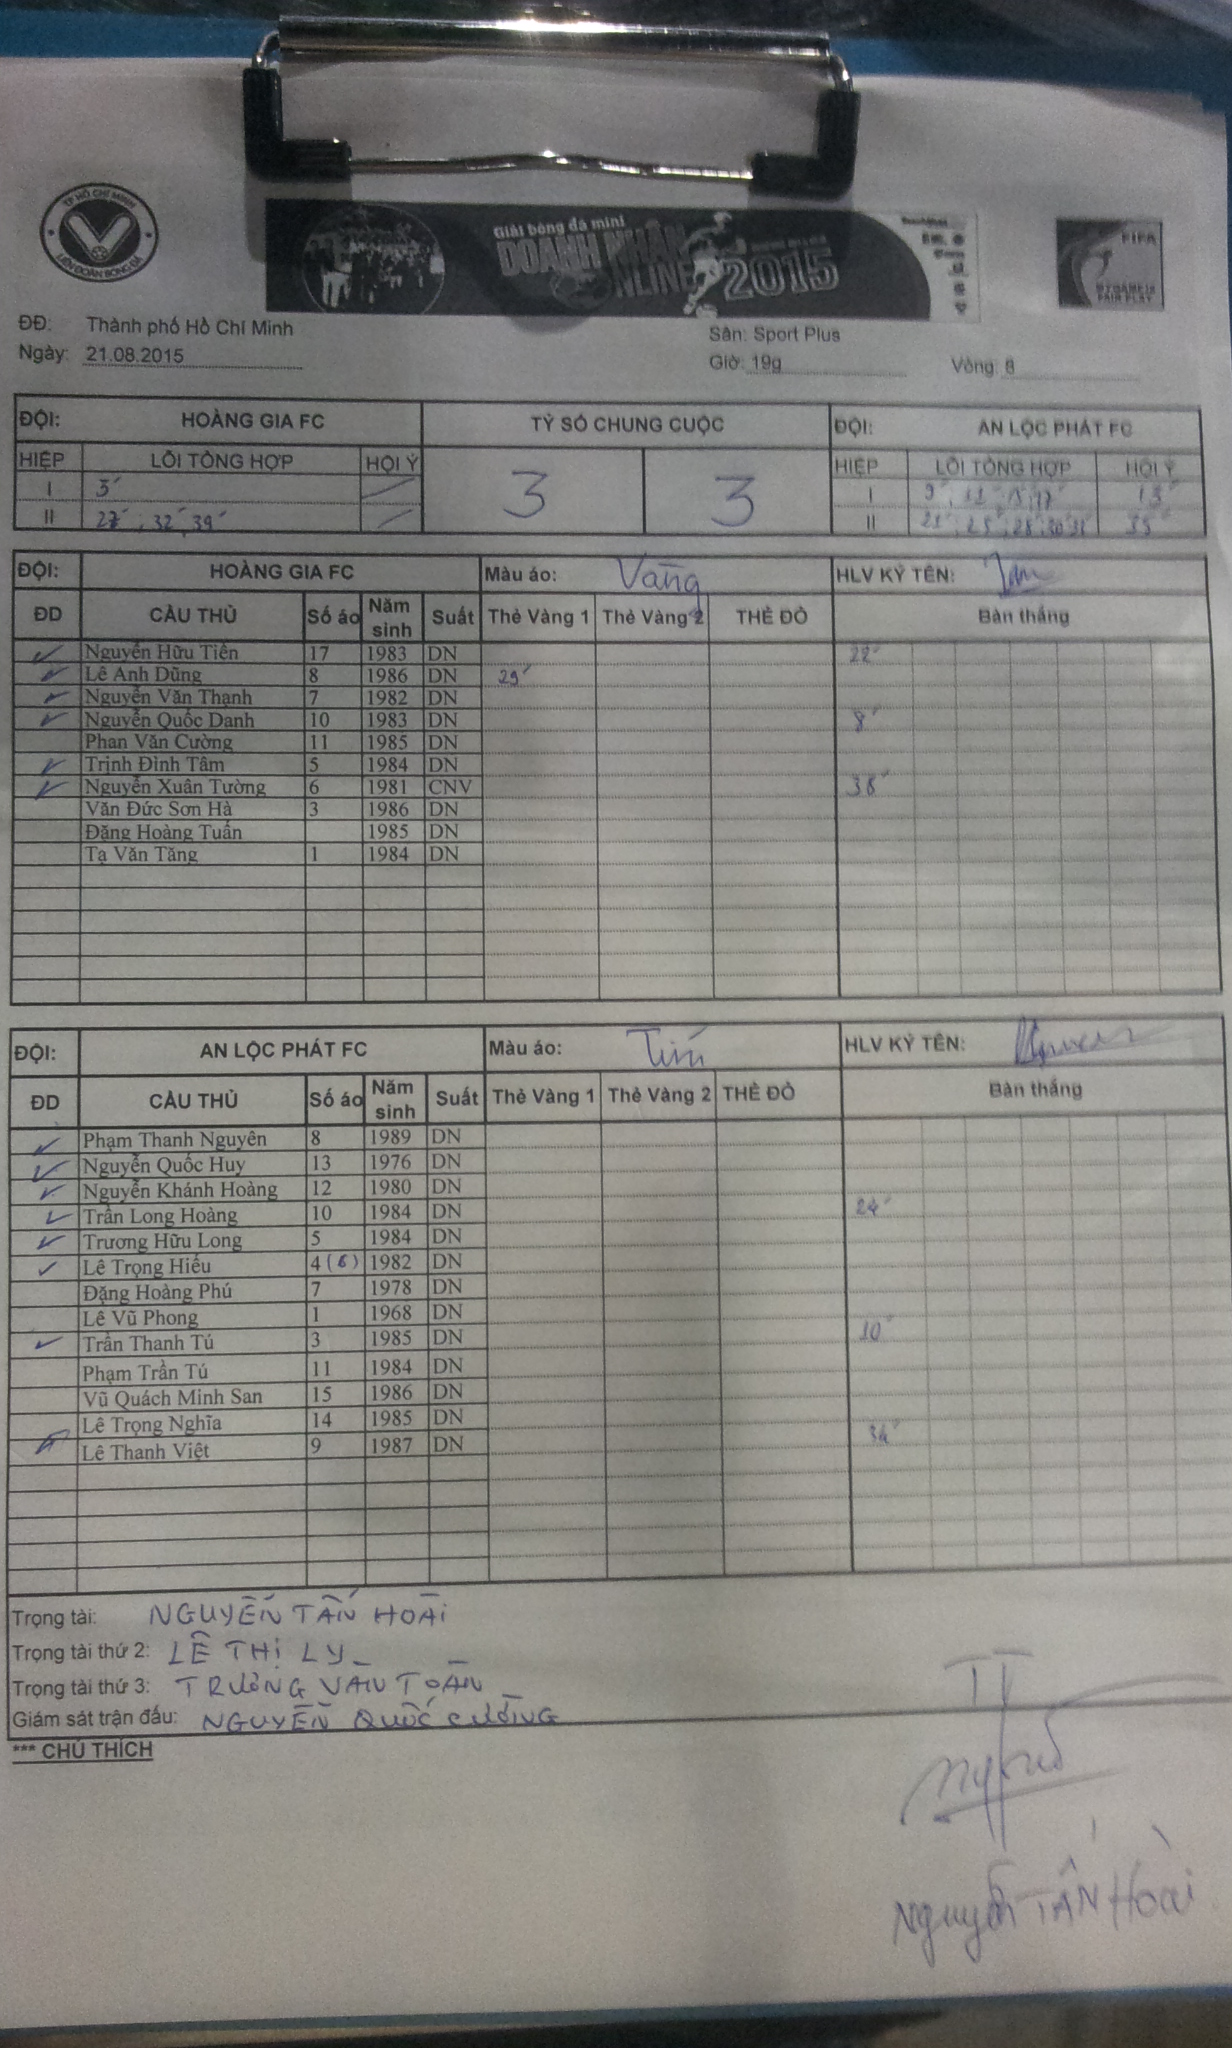 TP HỒ CHÍ MINH
LIÊN ĐOÀN BÓNG ĐÁ
Giải bóng đá mini
DOANH NHÂN
ONLINE 2015
FIFA
MY GAME IS
FAIR PLAY
ĐĐ: Thành phố Hồ Chí Minh Sân: Sport Plus
Ngày: 21.08.2015 Giờ: 19g Vòng: 8
ĐỘI: HOÀNG GIA FC TỶ SỐ CHUNG CUỘC ĐỘI: AN LỘC PHÁT FC
HIỆP LỖI TỔNG HỢP HỘI Ý 3 3 HIỆP LỖI TỔNG HỢP HỘI Ý
I 3' I 9' 13'
II 27' , 32' , 39' II 35'
ĐỘI: HOÀNG GIA FC Màu áo: Vàng HLV KÝ TÊN:
ĐD CẦU THỦ Số áo Năm sinh Suất Thẻ Vàng 1 Thẻ Vàng 2 THẺ ĐỎ Bàn thắng
Nguyễn Hữu Tiến 17 1983 DN 22'
Lê Anh Dũng 8 1986 DN 29'
Nguyễn Văn Thạnh 7 1982 DN
Nguyễn Quốc Danh 10 1983 DN 8'
Phan Văn Cường 11 1985 DN
Trịnh Đình Tâm 5 1984 DN
Nguyễn Xuân Tường 6 1981 CNV 38'
Văn Đức Sơn Hà 3 1986 DN
Đặng Hoàng Tuấn 1985 DN
Tạ Văn Tăng 1 1984 DN
ĐỘI: AN LỘC PHÁT FC Màu áo: Tím HLV KÝ TÊN:
ĐD CẦU THỦ Số áo Năm sinh Suất Thẻ Vàng 1 Thẻ Vàng 2 THẺ ĐỎ Bàn thắng
Phạm Thanh Nguyên 8 1989 DN
Nguyễn Quốc Huy 13 1976 DN
Nguyễn Khánh Hoàng 12 1980 DN
Trần Long Hoàng 10 1984 DN 24'
Trương Hữu Long 5 1984 DN
Lê Trọng Hiếu 4 (6) 1982 DN
Đặng Hoàng Phú 7 1978 DN
Lê Vũ Phong 1 1968 DN
Trần Thanh Tú 3 1985 DN 10'
Phạm Trần Tú 11 1984 DN
Vũ Quách Minh San 15 1986 DN
Lê Trọng Nghĩa 14 1985 DN
Lê Thanh Việt 9 1987 DN 34'
Trọng tài: NGUYỄN TẤN HOÀI
Trọng tài thứ 2: LÊ THỊ LY
Trọng tài thứ 3: TRƯƠNG VĂN TOÀN
Giám sát trận đấu: NGUYỄN QUỐC CƯỜNG
*** CHÚ THÍCH
TT
Nguyễn TẤN Hoài